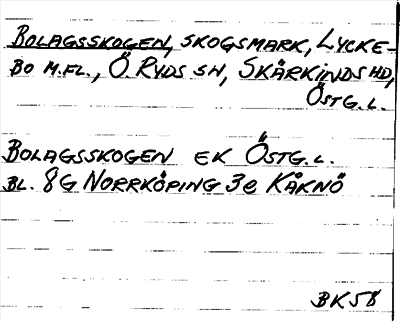 BOLAGSSKOGEN, SKOGSMARK, LYCKE-
BO M.FL., Ö. RYDS SN, SKÄRKINDS HD,
ÖSTG.L.
BOLAGSSKOGEN EK ÖSTG.L.
BL. 8G NORRKÖPING 3e KÅKNÖ
BK58